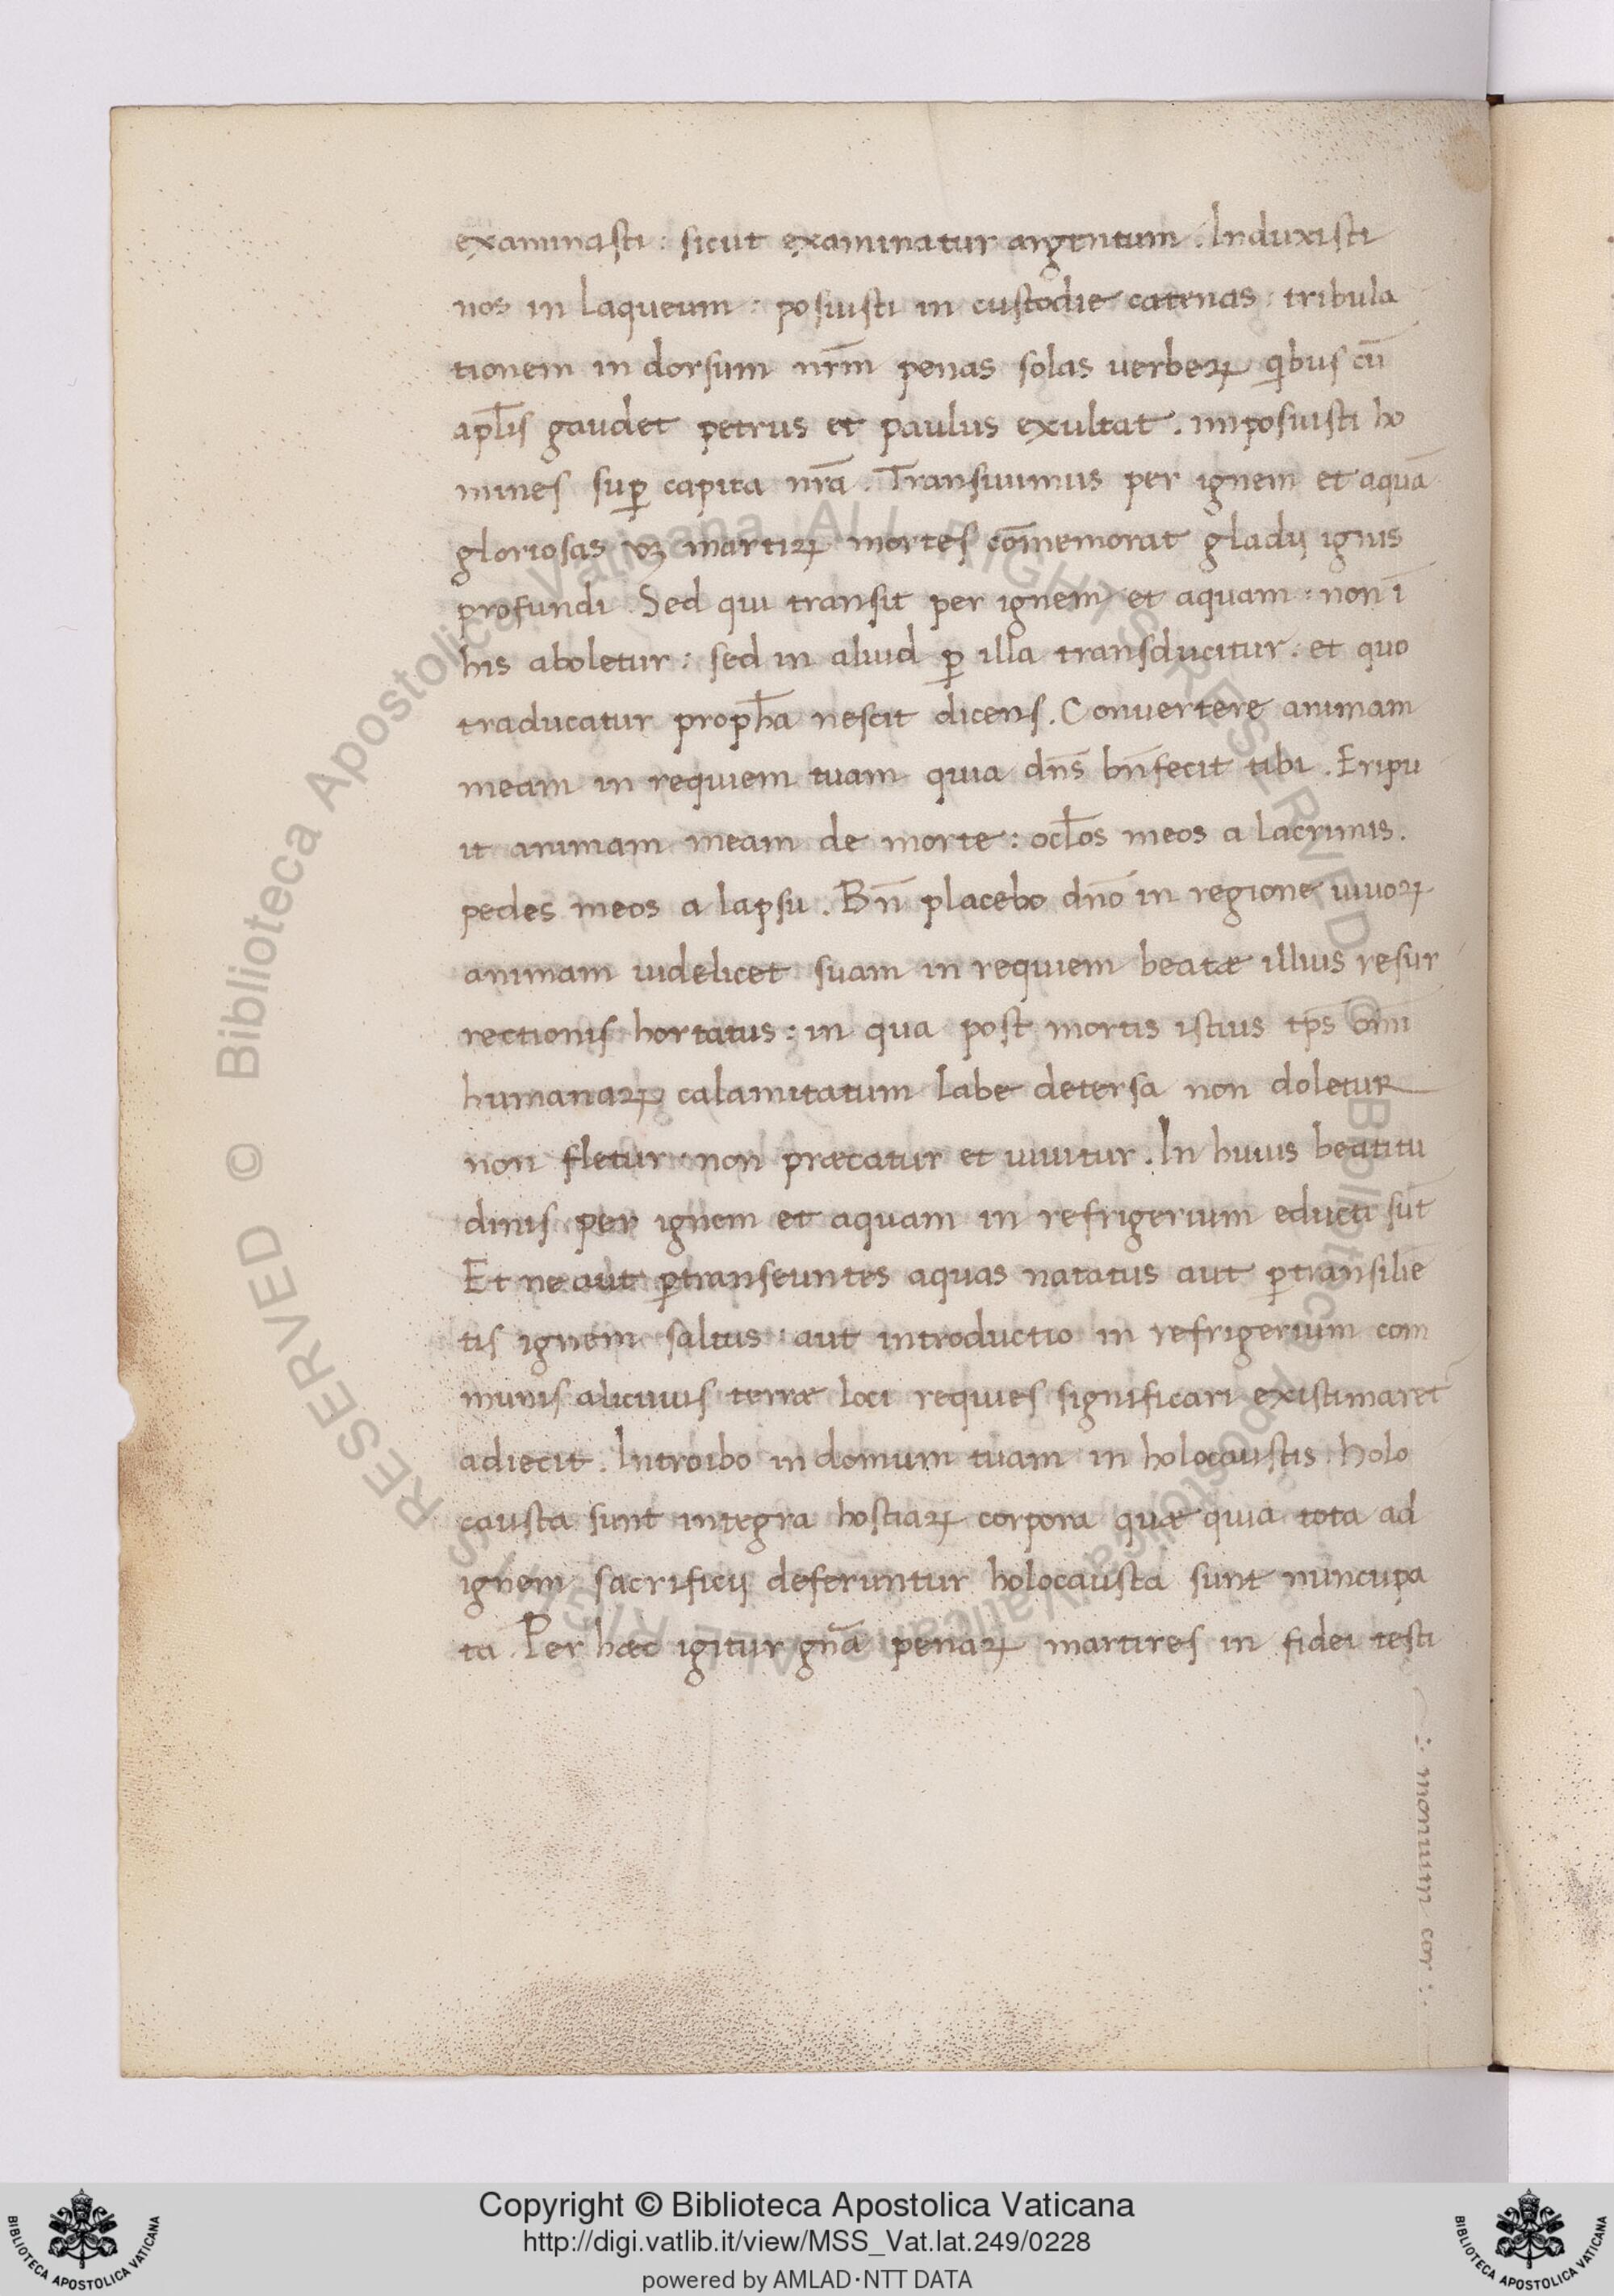 examinasti : sicut examinatur argentum . Induxisti
nos in laqueum : posuisti in custodie catenas : tribula
tionem in dorsum nr̄m penas solas uerbeꝝ qͥbus cū
apl̄is gaudet petrus et paulus exultat . imposuisti ho
mines suꝑ capita nr̄a . Transiuimus per ignem et aquā
gloriosas uꝫ martiꝝ mortes com̄emorat gladij ignis
profundi . Sed qui transit per ignem et aquam : non ī
his aboletur : sed in aliud ꝑ illa transducitur . et quo
traducatur proph̄a nescit dicens . Conuertere animam
meam in requiem tuam quia dn̄s bn̄fecit tibi . Eripu
it animam meam de morte : ocl̄os meos a lacrimis .
pedes meos a lapsu . Bn̄ placebo dn̄o in regione uiuoꝝ
animam uidelicet suam in requiem beatæ illius resur
rectionis hortatus : in qua post mortis istius tp̄s om̄i
humanaꝝ calamitatum labe detersa non doletur
non fletur . non præcatur et uiuitur . In huius beatitu
dinis per ignem et aquam in refrigerium educti sūt
Et ne aut ꝑtranseuntes aquas natatus aut ꝑtransiliē
tis ignem saltus : aut introductio in refrigerium com
munis alicuius terræ loci requies significari existimaret̄
adiecit . Introibo in domum tuam in holocaustis . Holo
causta sunt integra hostiaꝝ corpora quæ quia tota ad
ignem sacrificij deferuntur holocausta sunt nuncupa
ta . Per hæc igitur gn̄a penaꝝ martires in fidei testi
: monium cor :
Biblioteca Apostolica Vaticana ALL RIGHTS RESERVED © Biblioteca Apostolica Vaticana ALL RIGHTS RESERVED ©
Copyright © Biblioteca Apostolica Vaticana
http://digi.vatlib.it/view/MSS_Vat.lat.249/0228
powered by AMLAD·NTT DATA
BIBLIOTECA APOSTOLICA VATICANA
BIBLIOTECA APOSTOLICA VATICANA